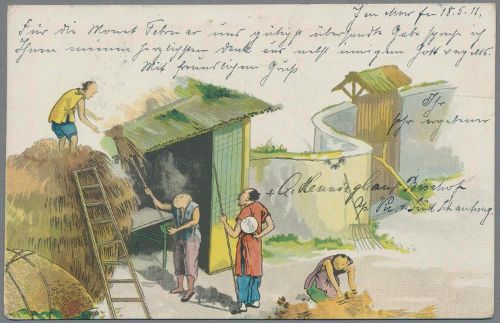 18.5.11.
Für die Monat Februar uns gütigst übersandte Gabe spreche ich
Ihnen meinen herzlichsten Dank aus nebst innigem Gott vergelts.
Mit freundlichem Gruß
Ihr
sehr ergebener
+ A. Henninghaus Bischof
Süd Schantung